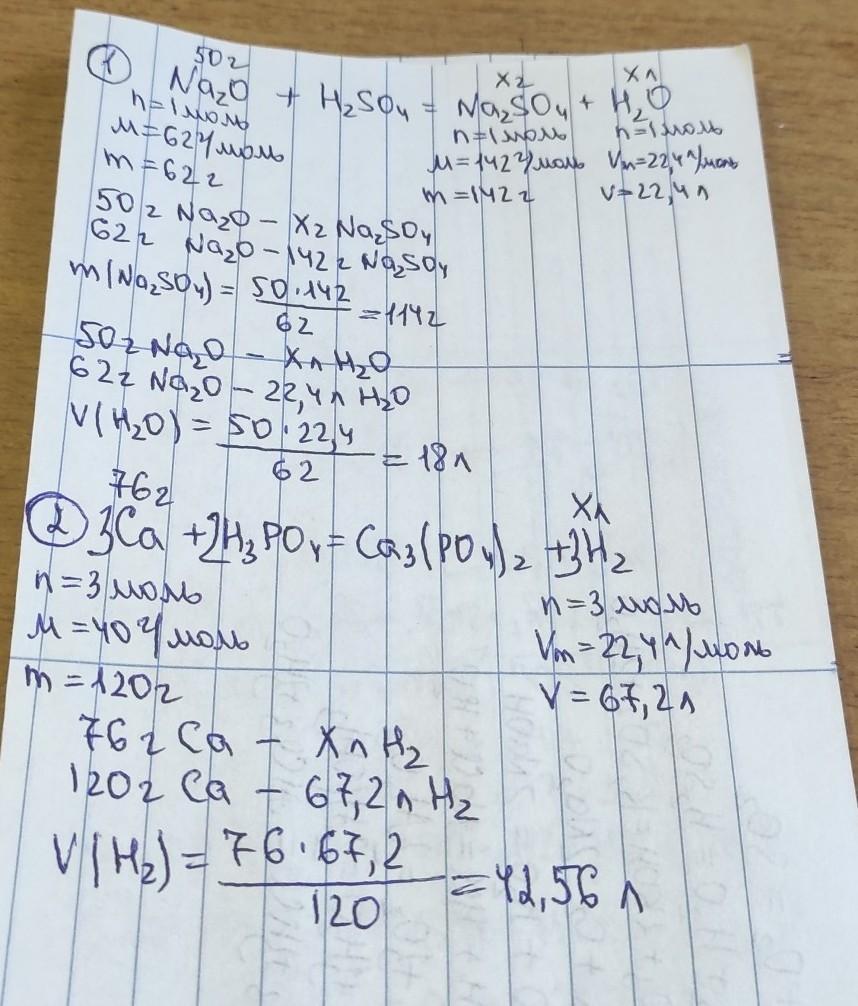 1 50г
Na₂O + H₂SO₄ = Na₂SO₄ + H₂O
хг хл
n=1моль n=1моль n=1моль
M=62г/моль M=142г/моль Vm=22,4л/моль
m=62г m=142г V=22,4л
50г Na₂O – хг Na₂SO₄
62г Na₂O – 142г Na₂SO₄
m(Na₂SO₄) = 50·142 / 62 = 114г
50г Na₂O – хл H₂O
62г Na₂O – 22,4л H₂O
V(H₂O) = 50·22,4 / 62 = 18л
76г хл
2 3Ca + 2H₃PO₄ = Ca₃(PO₄)₂ + 3H₂
n=3моль n=3моль
M=40г/моль Vm=22,4л/моль
m=120г V=67,2л
76г Ca – хл H₂
120г Ca – 67,2л H₂
V(H₂) = 76·67,2 / 120 = 42,56 л